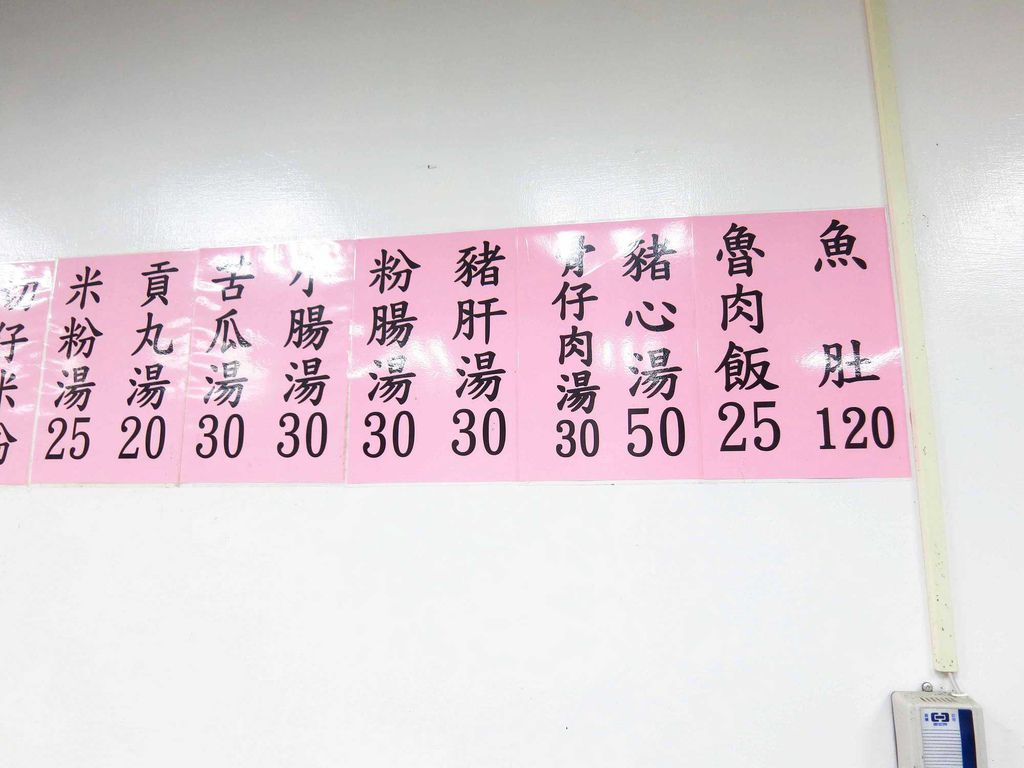 魚肚120
魯肉飯25
豬心湯50
骨仔肉湯30
豬肝湯30
粉腸湯30
小腸湯30
苦瓜湯30
貢丸湯20
米粉湯25
切仔米粉